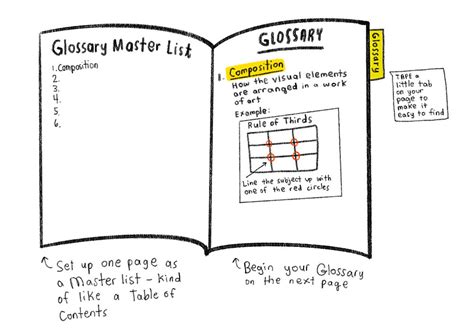 Glossary Master List
1. Composition
2.
3.
4.
5.
6.
GLOSSARY
1. Composition
How the visual elements
are arranged in a work
of art
Example:
Rule of Thirds
Line the subject up with
one of the red circles
Glossary
TAPE a
little tab
on your
page to
make it
easy to find
Set up one page as
a Master list - kind
of like a Table of
Contents
Begin your Glossary
on the next page